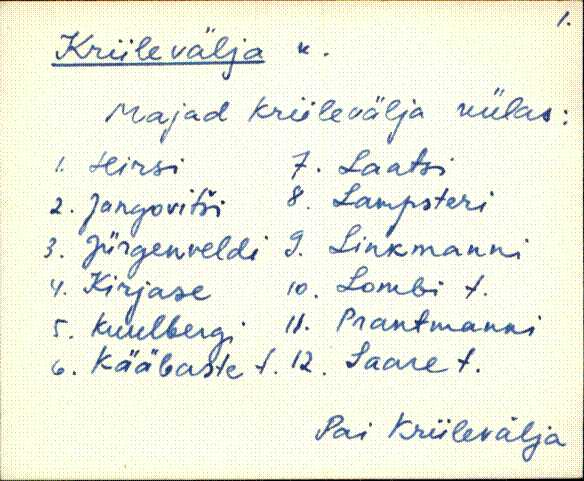 1.
Kriilevälja k.
Majad Kriilevälja külas:
1. Hirsi 7. Laatsi
2. Jangovitši 8. Lampsteri
3. Jürgenveldi 9. Linkmanni
4. Kirjase 10. Lombi t.
5. Kuulbergi 11. Prantmanni
6. Kääbaste t. 12. Saare t.
Pai Kriilevälja